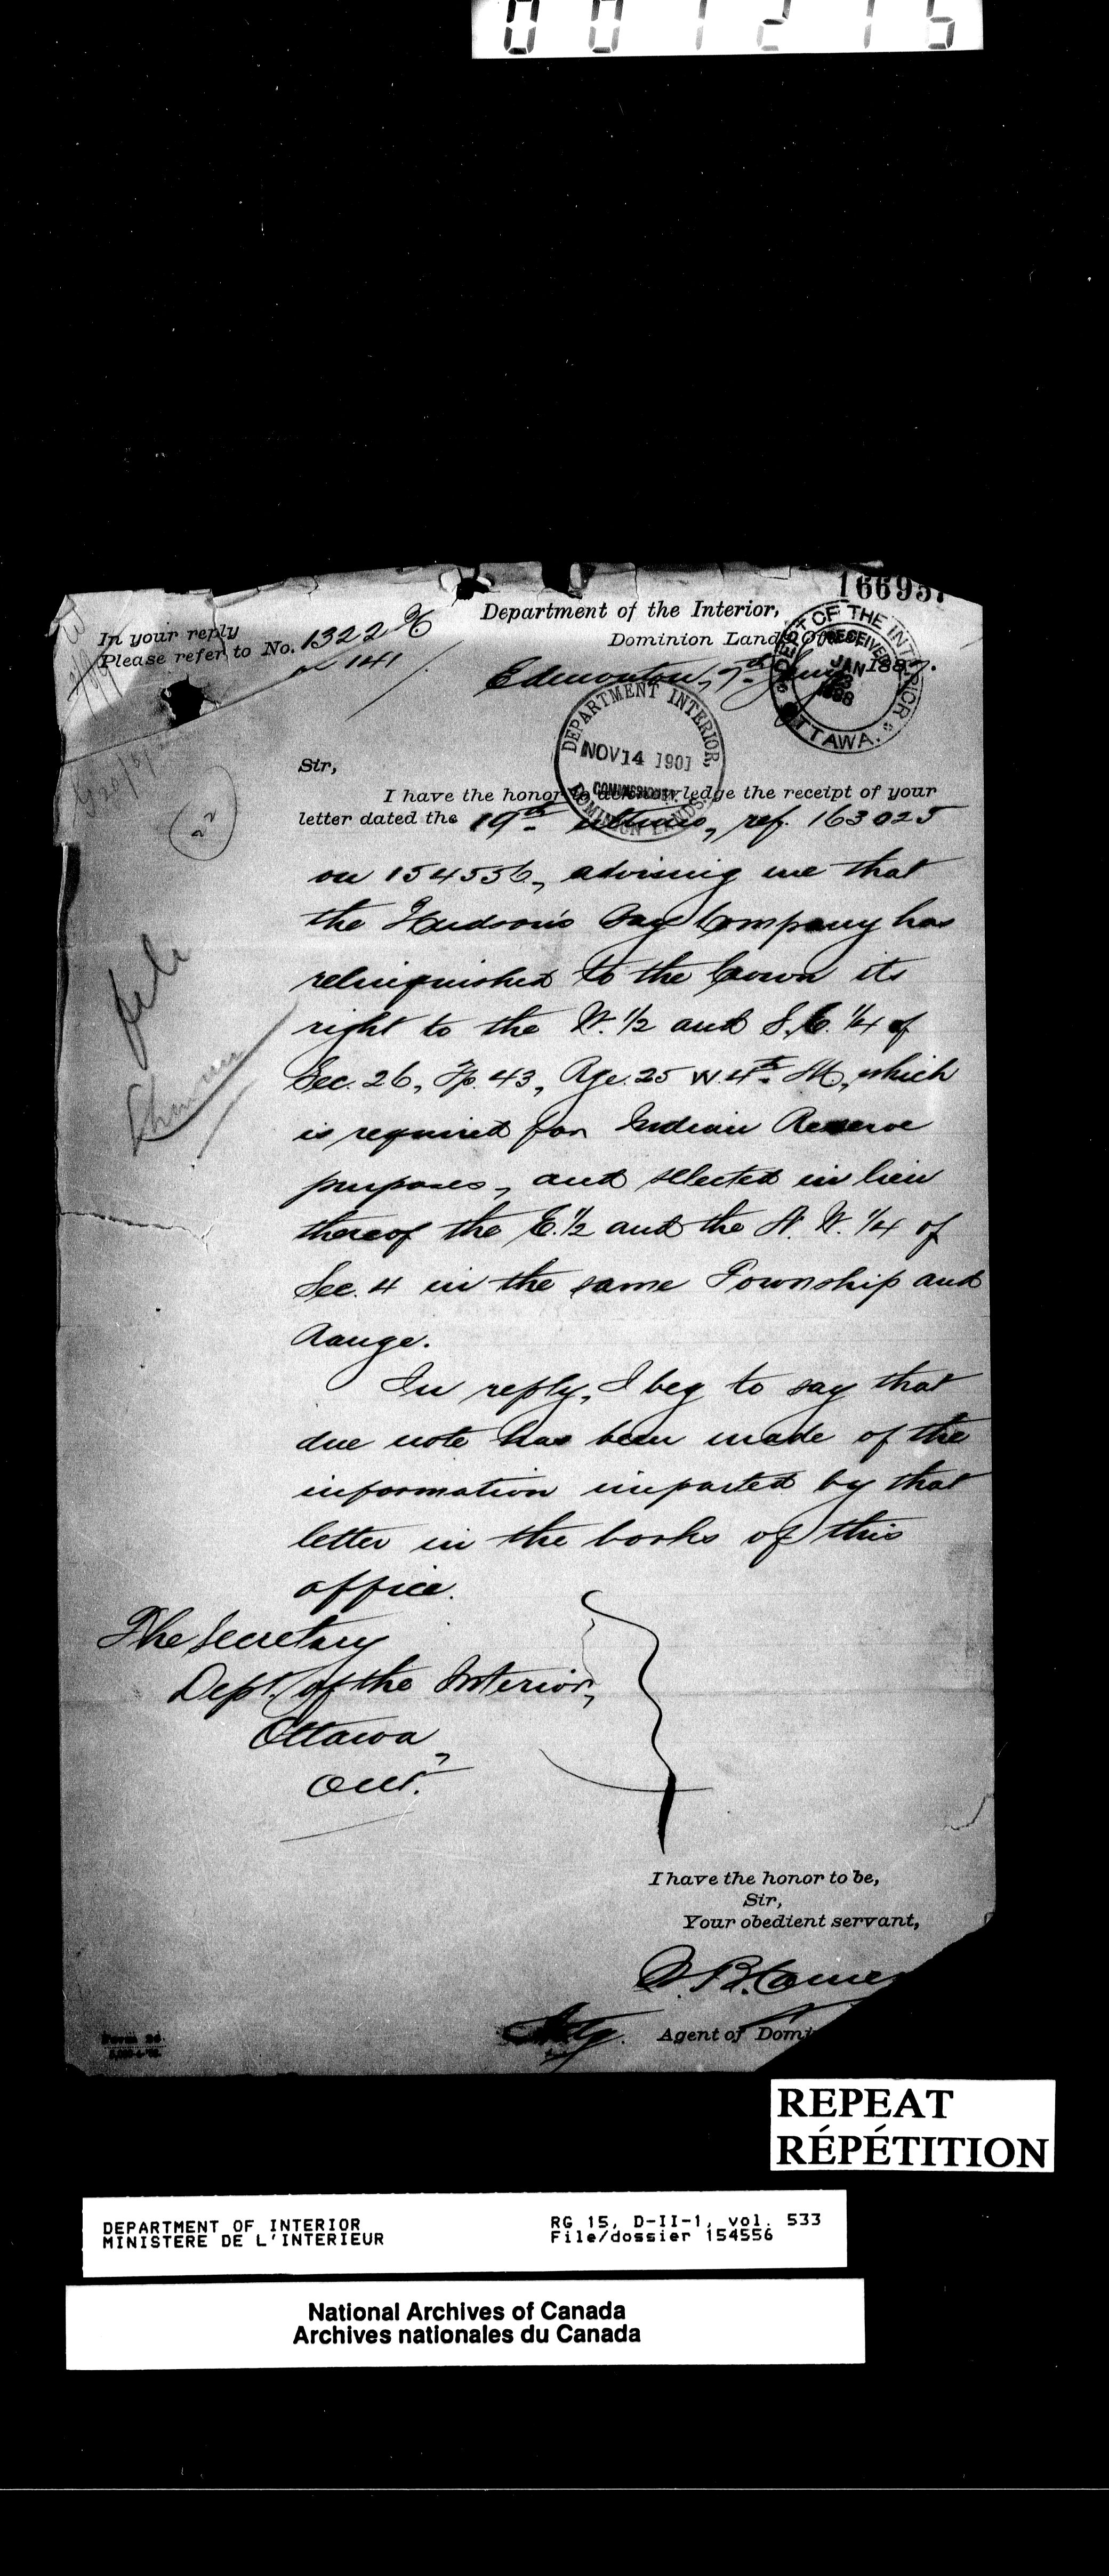 001215
166957
Department of the Interior,
In your reply
Please refer to No. 1322
on 141
Dominion Lands Office
Edmonton, 7th Jany 1887.
DEPT OF THE INTERIOR
RECEIVED
JAN
1888
OTTAWA.
DEPARTMENT INTERIOR,
NOV 14 1901
COMMISSIONER
DOMINION LANDS.
22
Sir,
I have the honor to acknowledge the receipt of your
letter dated the 19th ultimo, ref. 163025
on 154556, advising me that
the Hudson's Bay Company has
relinquished to the Crown its
right to the W. 1/2 and S.E. 1/4 of
Sec. 26, Tp. 43, Rge. 25 W. 4th M, which
is required for Indian Reserve
purposes, and selected in lieu
thereof the E. 1/2 and the N. W. 1/4 of
Sec. 4 in the same Township and
Range.
file
In reply, I beg to say that
due note has been made of the
information imparted by that
letter in the books of this
office.
The Secretary
Dept. of the Interior,
Ottawa,
Ont.
I have the honor to be,
Sir,
Your obedient servant,
Actg. Agent of Domi
REPEAT
RÉPÉTITION
DEPARTMENT OF INTERIOR
MINISTERE DE L'INTERIEUR
RG 15, D-II-1, vol. 533
File/dossier 154556
National Archives of Canada
Archives nationales du Canada